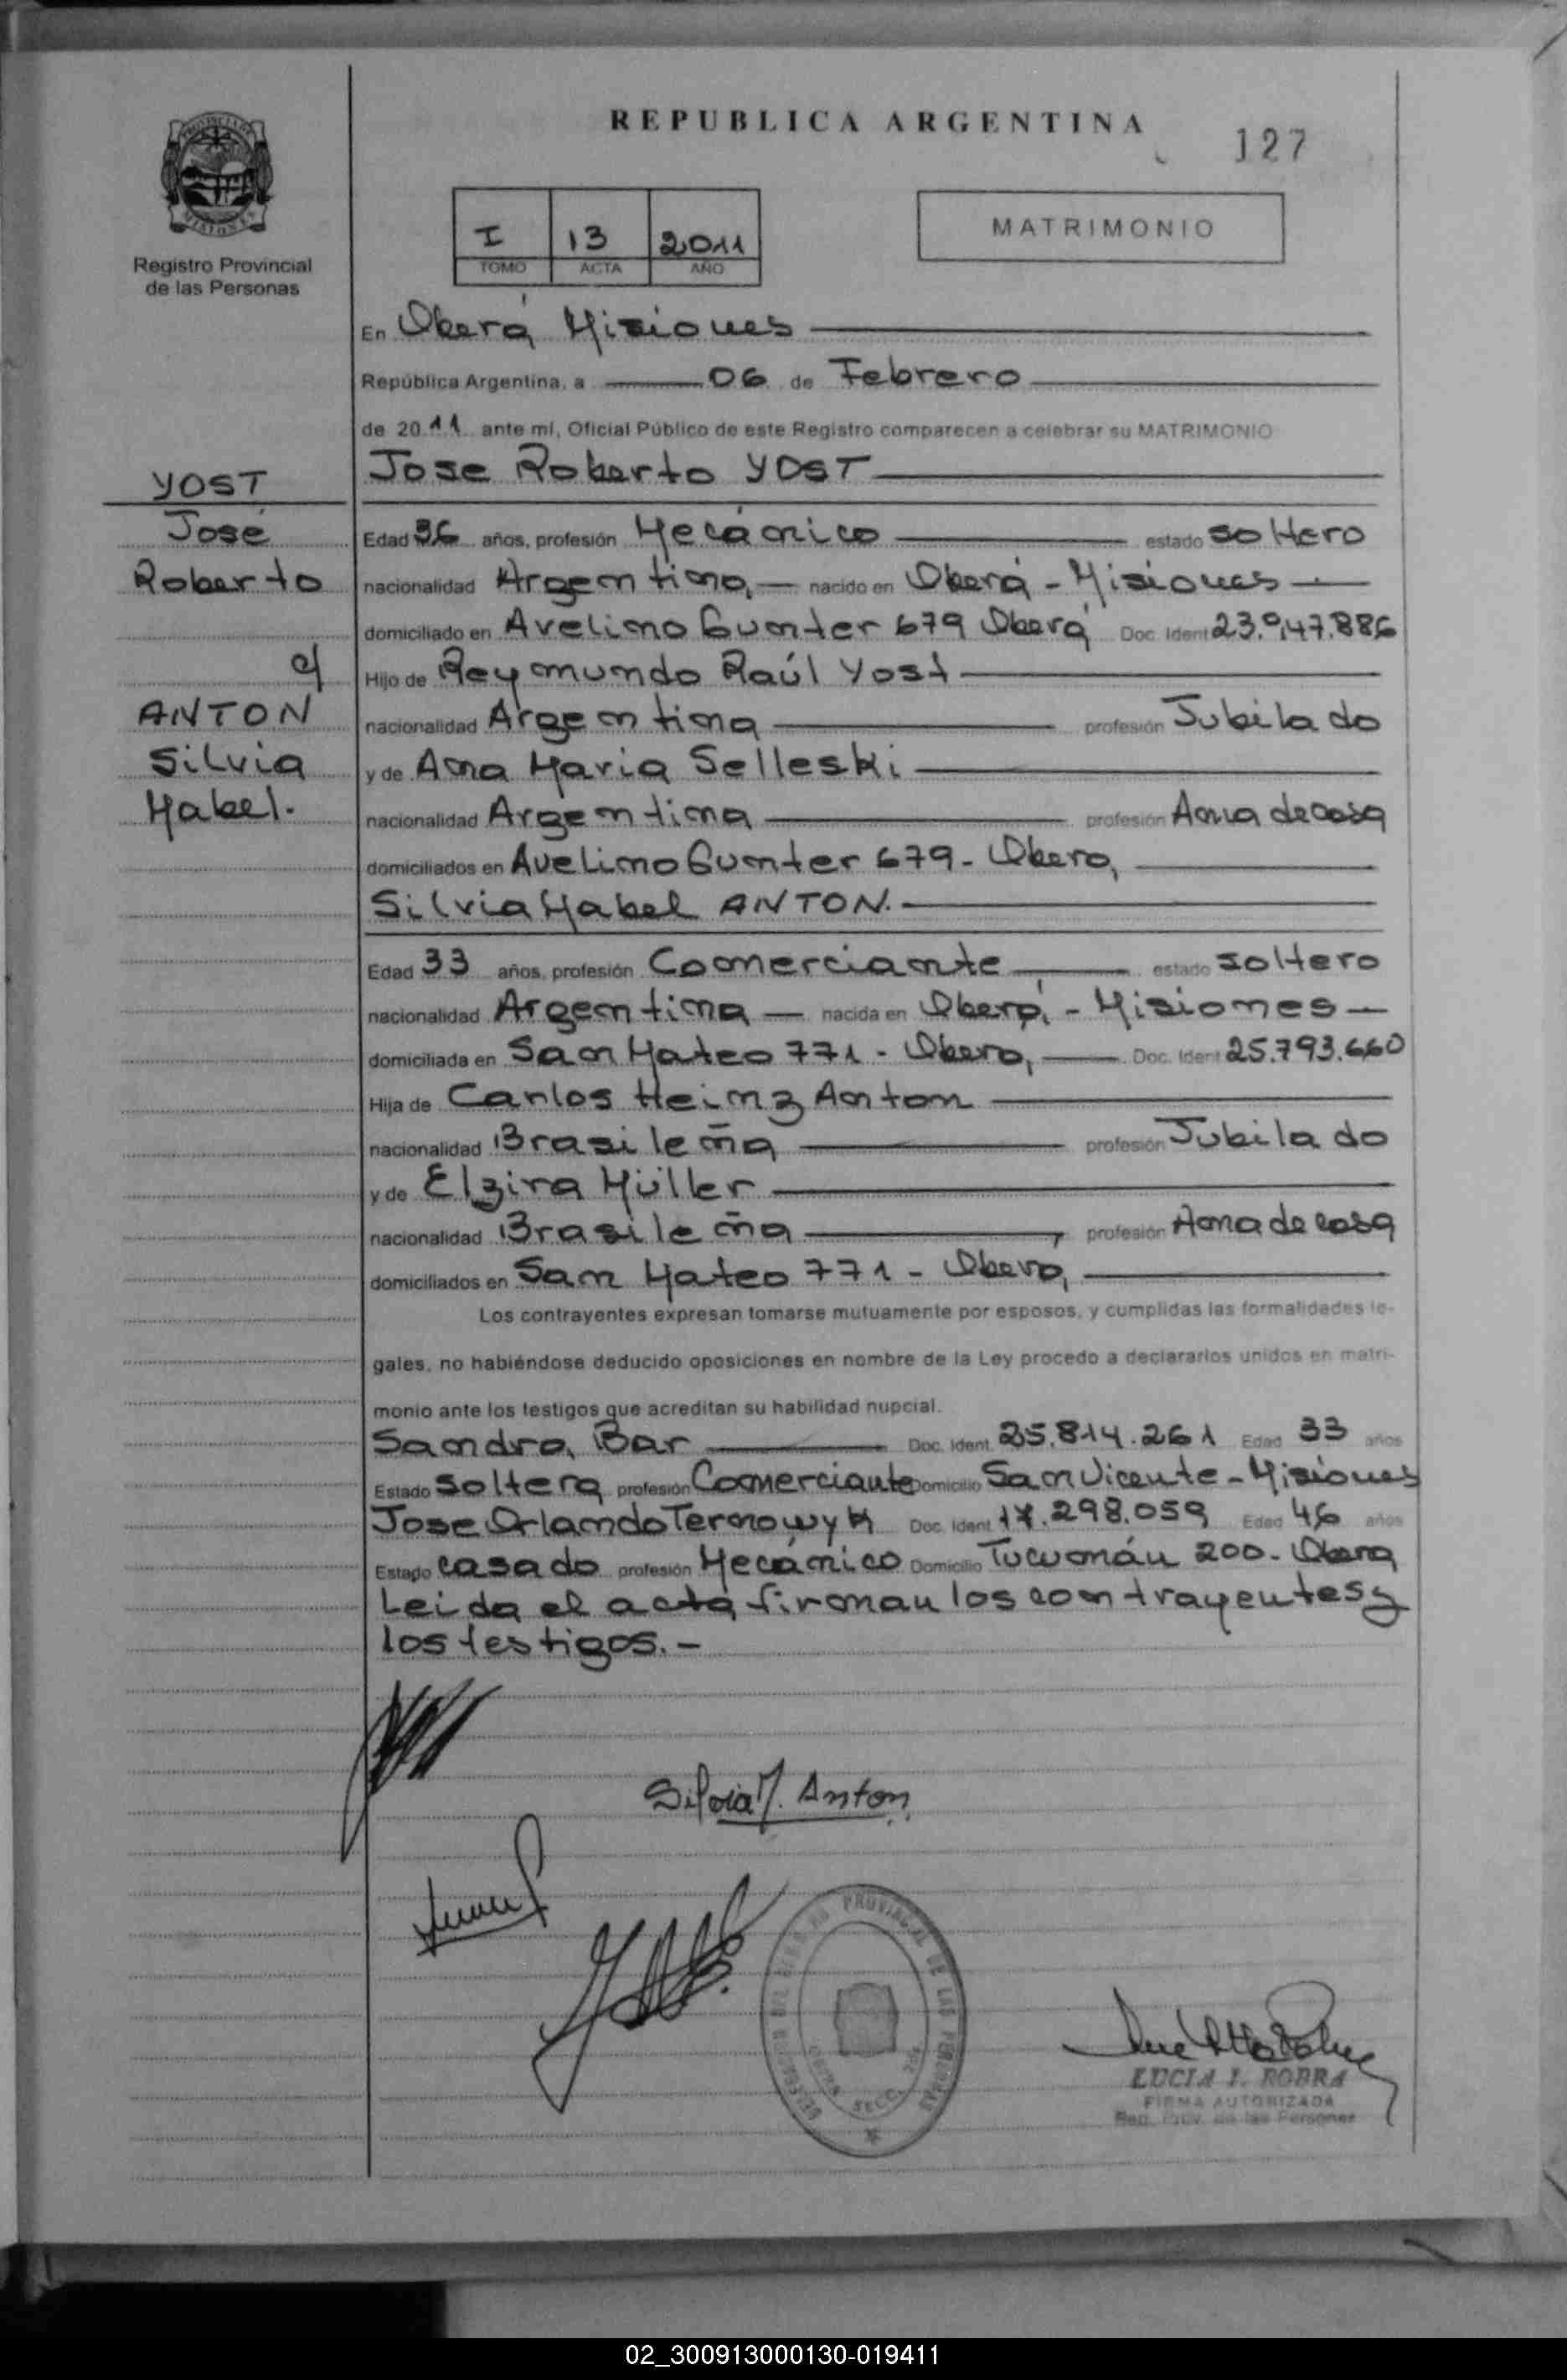 REPUBLICA ARGENTINA
127
MATRIMONIO
I 13 2011
TOMO ACTA AÑO
Registro Provincial
de las Personas
En Oberá Misiones
República Argentina, a 06 de Febrero
de 2011 ante mí, Oficial Público de este Registro comparecen a celebrar su MATRIMONIO
Jose Roberto YOST
YOST
José
Roberto
c/
ANTON
Silvia
Mabel.
Edad 36 años, profesión Mecánico estado soltero
nacionalidad Argentina, nacido en Oberá - Misiones
domiciliado en Avelino Gunter 679 Oberá Doc. Ident 23.947.886
Hijo de Reymundo Raúl Yost
nacionalidad Argentina profesión Jubilado
y de Ana Maria Selleski
nacionalidad Argentina profesión Ama de casa
domiciliados en Avelino Gunter 679 - Oberá
Silvia Mabel ANTON.
Edad 33 años, profesión Comerciante estado soltero
nacionalidad Argentina nacida en Oberá - Misiones
domiciliada en San Mateo 771 - Oberá Doc. Ident 25.793.660
Hija de Carlos Heinz Anton
nacionalidad Brasileña profesión Jubilado
y de Elzira Müller
nacionalidad Brasileña profesión Ama de casa
domiciliados en San Mateo 771 - Oberá
Los contrayentes expresan tomarse mutuamente por esposos, y cumplidas las formalidades le-
gales, no habiéndose deducido oposiciones en nombre de la Ley procedo a declararlos unidos en matri-
monio ante los testigos que acreditan su habilidad nupcial.
Sandra Bar Doc. Ident. 25.814.261 Edad 33 años
Estado soltera profesión Comerciante Domicilio San Vicente - Misiones
Jose Orlando Ternowyk Doc. Ident. 17.298.059 Edad 46 años
Estado casado profesión Mecánico Domicilio Tucumán 200 - Oberá
Leida el acta firman los contrayentes y
los testigos. -
Silvia M. Anton
LUCIA I. ROBRA
FIRMA AUTORIZADA
Reg. Prov. de las Personas
02_300913000130-019411